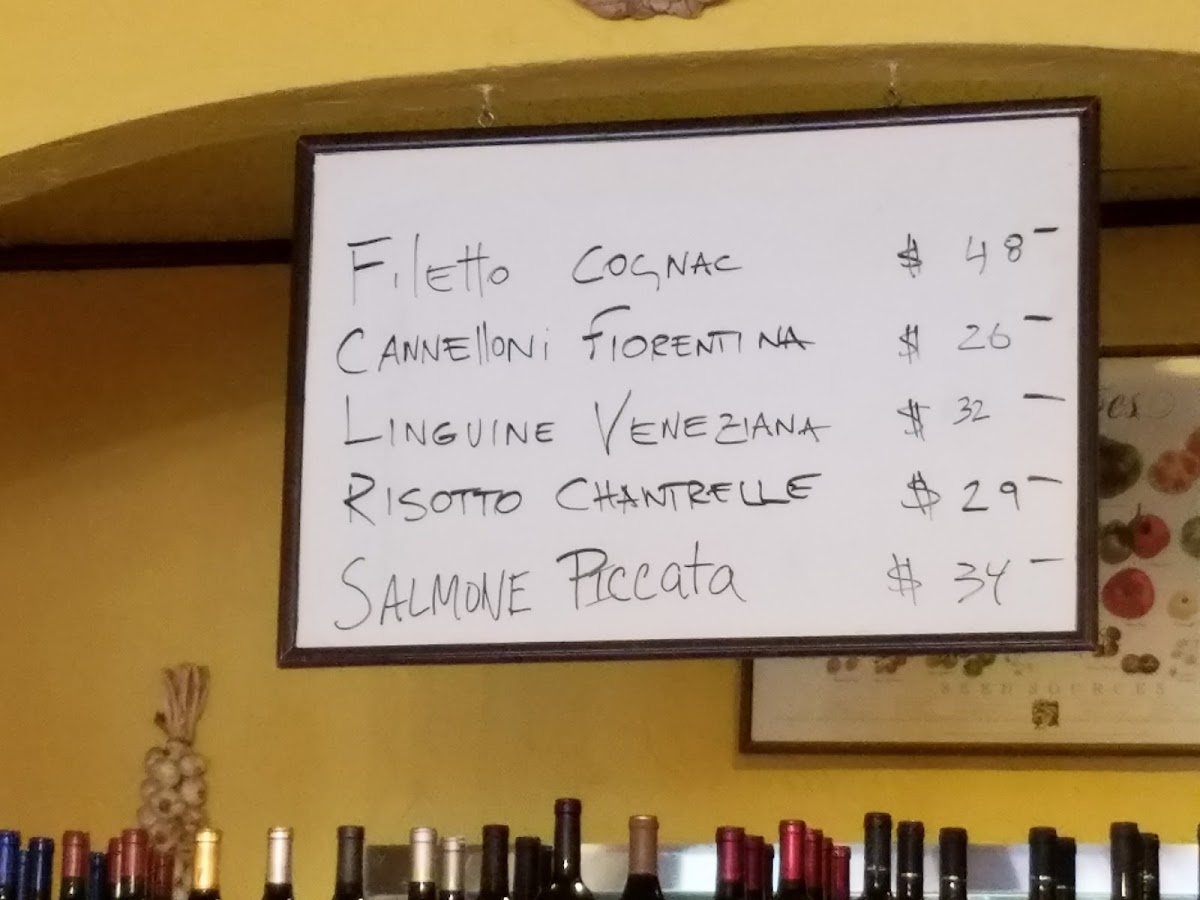 Filetto COGNAC $ 48-
CANNELLONi FIORENTINA $ 26-
LINGUINE VENEZIANA $ 32 -
RISOTTO CHANTRELLE $ 29-
SALMONE Piccata $ 34-
SEED SOURCES